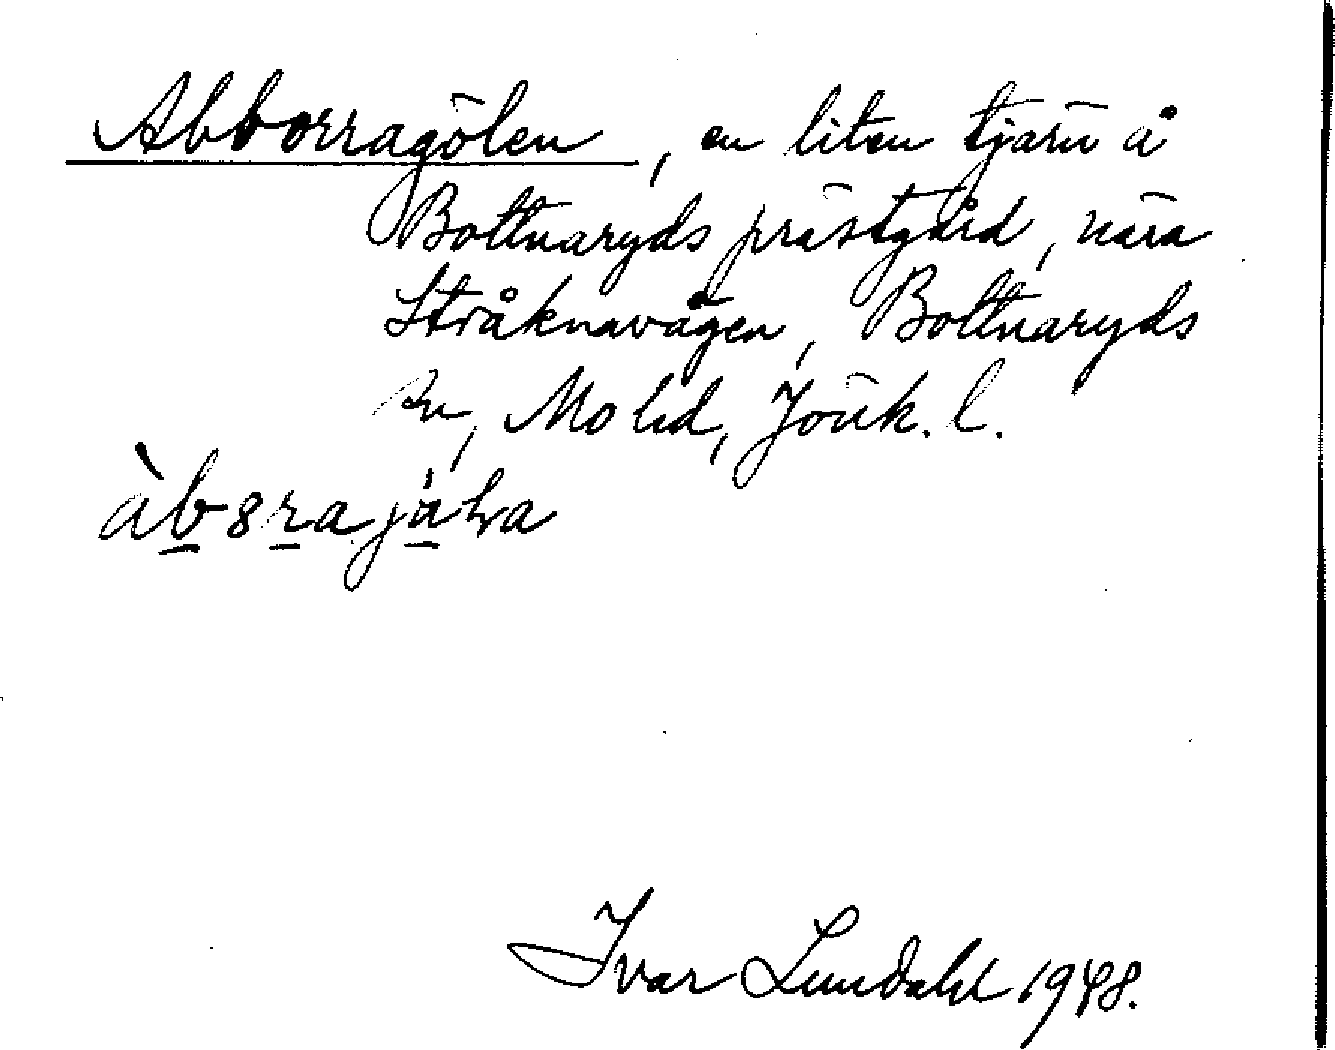 Abborragölen, en liten tjärn å
Bottnaryds prästgård, nära
Stråknavägen, Bottnaryds
sn, Mo hd, Jönk. l.
Ivar Lundahl 1948.